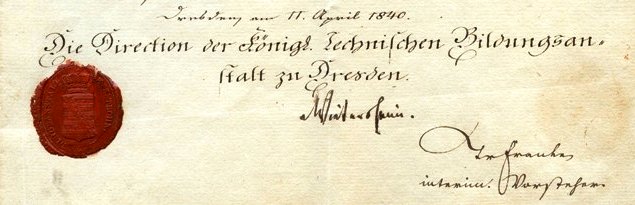 Dresden, am 11. April 1840.
Die Direction der Königl. technischen Bildungsan-
stalt zu Dresden.
Wietersheim.
Dr Franke
interim. Vorsteher.